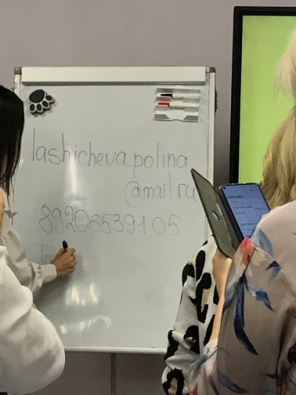 lashicheva.polina
@mail.ru
89206539105